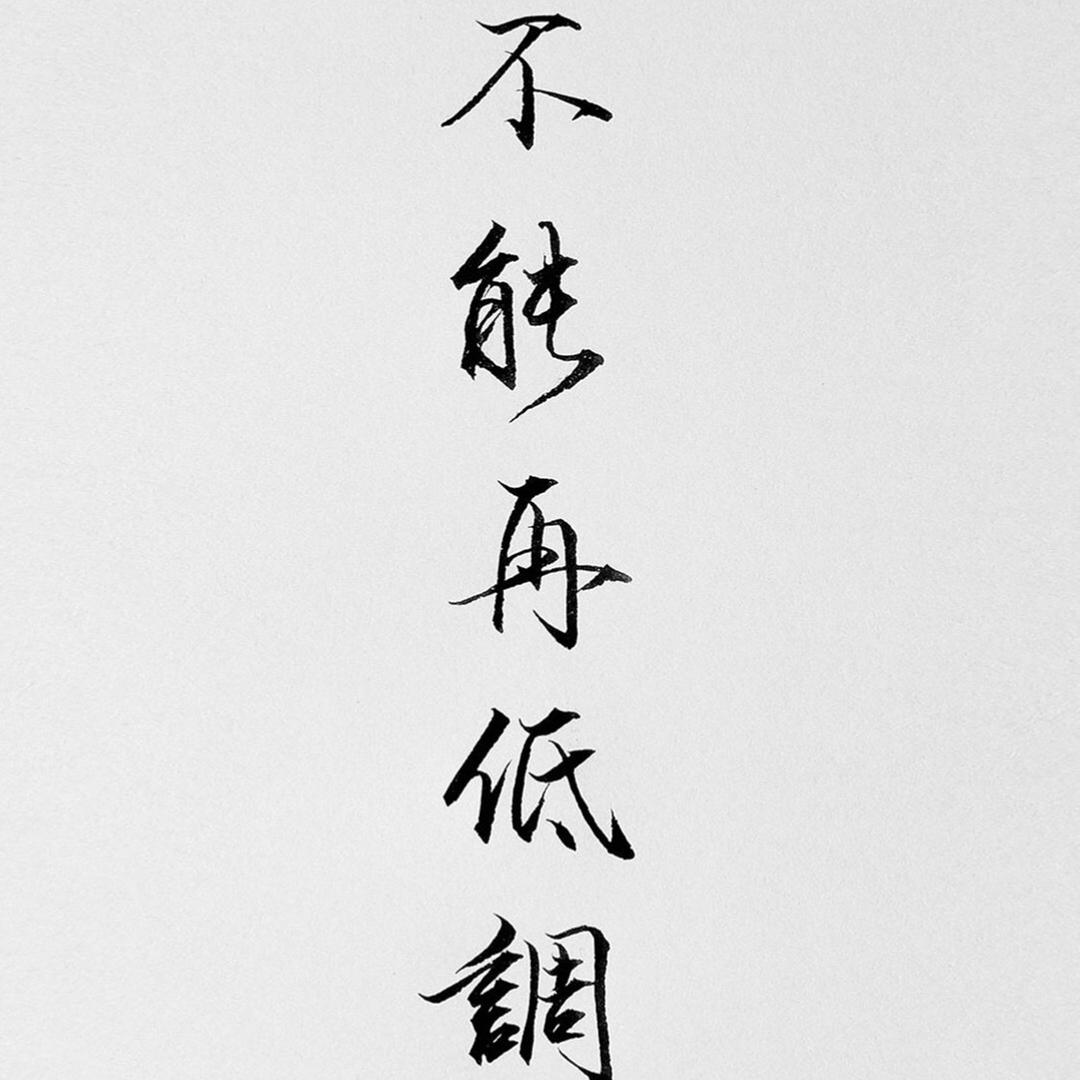 不能再低調